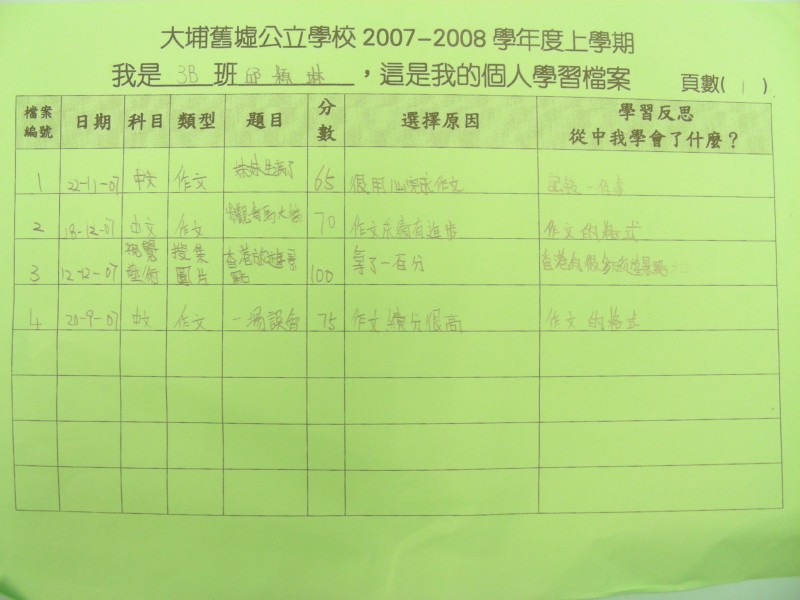 大埔舊墟公立學校 2007-2008 學年度上學期
我是 3B 班 邱 穎 琳 ，這是我的個人學習檔案 頁數( 1 )
檔案編號 日期 科目 類型 題目 分數 選擇原因 學習反思 從中我學會了什麼？
1 22-11-07 中文 作文 妹妹生病了 65 作文
2 18-12-07 中文 作文 70 作文成績有進步 作文的格式
3 12-12-07 視覺藝術 授業圖片 香港旅遊景點 100 拿了一百分 香港有
4 20-9-07 中文 作文 一場誤會 75 作文績分很高 作文的格式